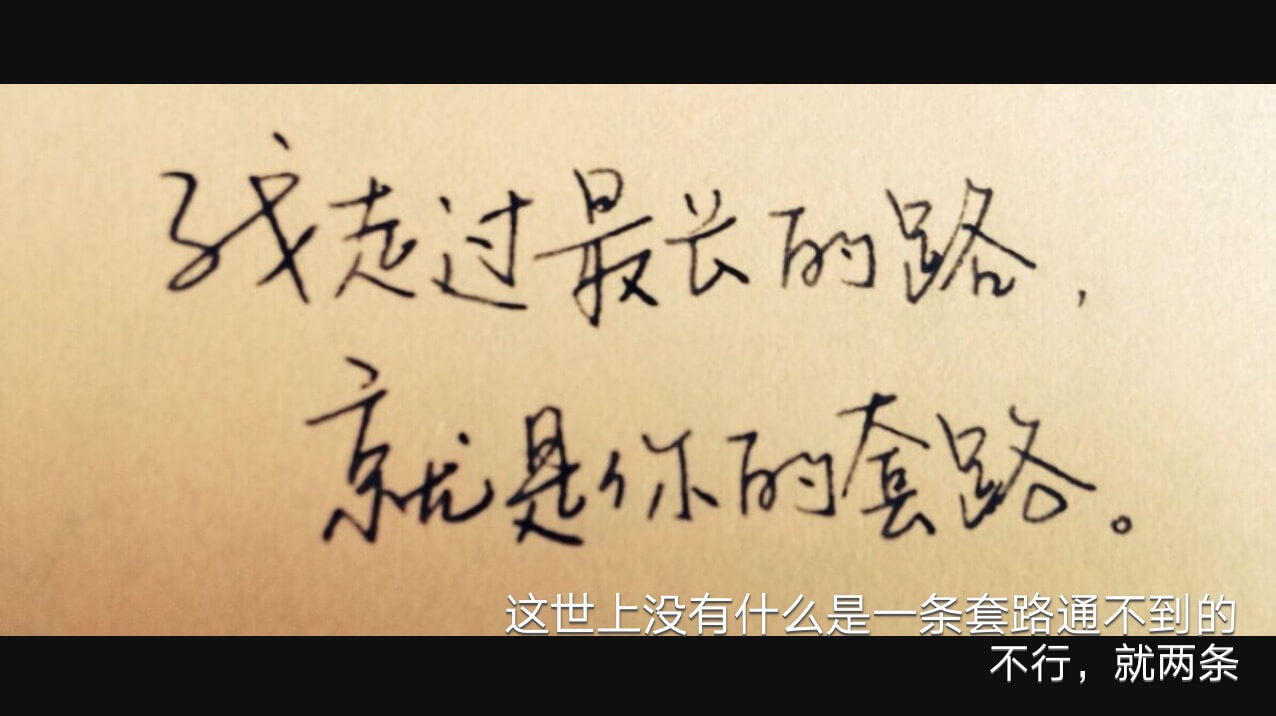 我走过最长的路，
就是你的套路。
这世上没有什么是一条套路通不到的
不行，就两条